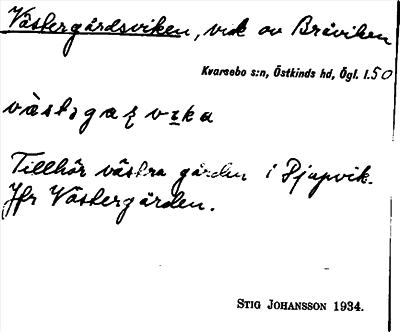 Västergårdsviken, vik av Bråviken
Kvarsebo s:n, Östkinds hd, Ögl. l.50
Tillhör västra gården i Djupvik.
Jfr Västergården.
STIG JOHANSSON 1934.